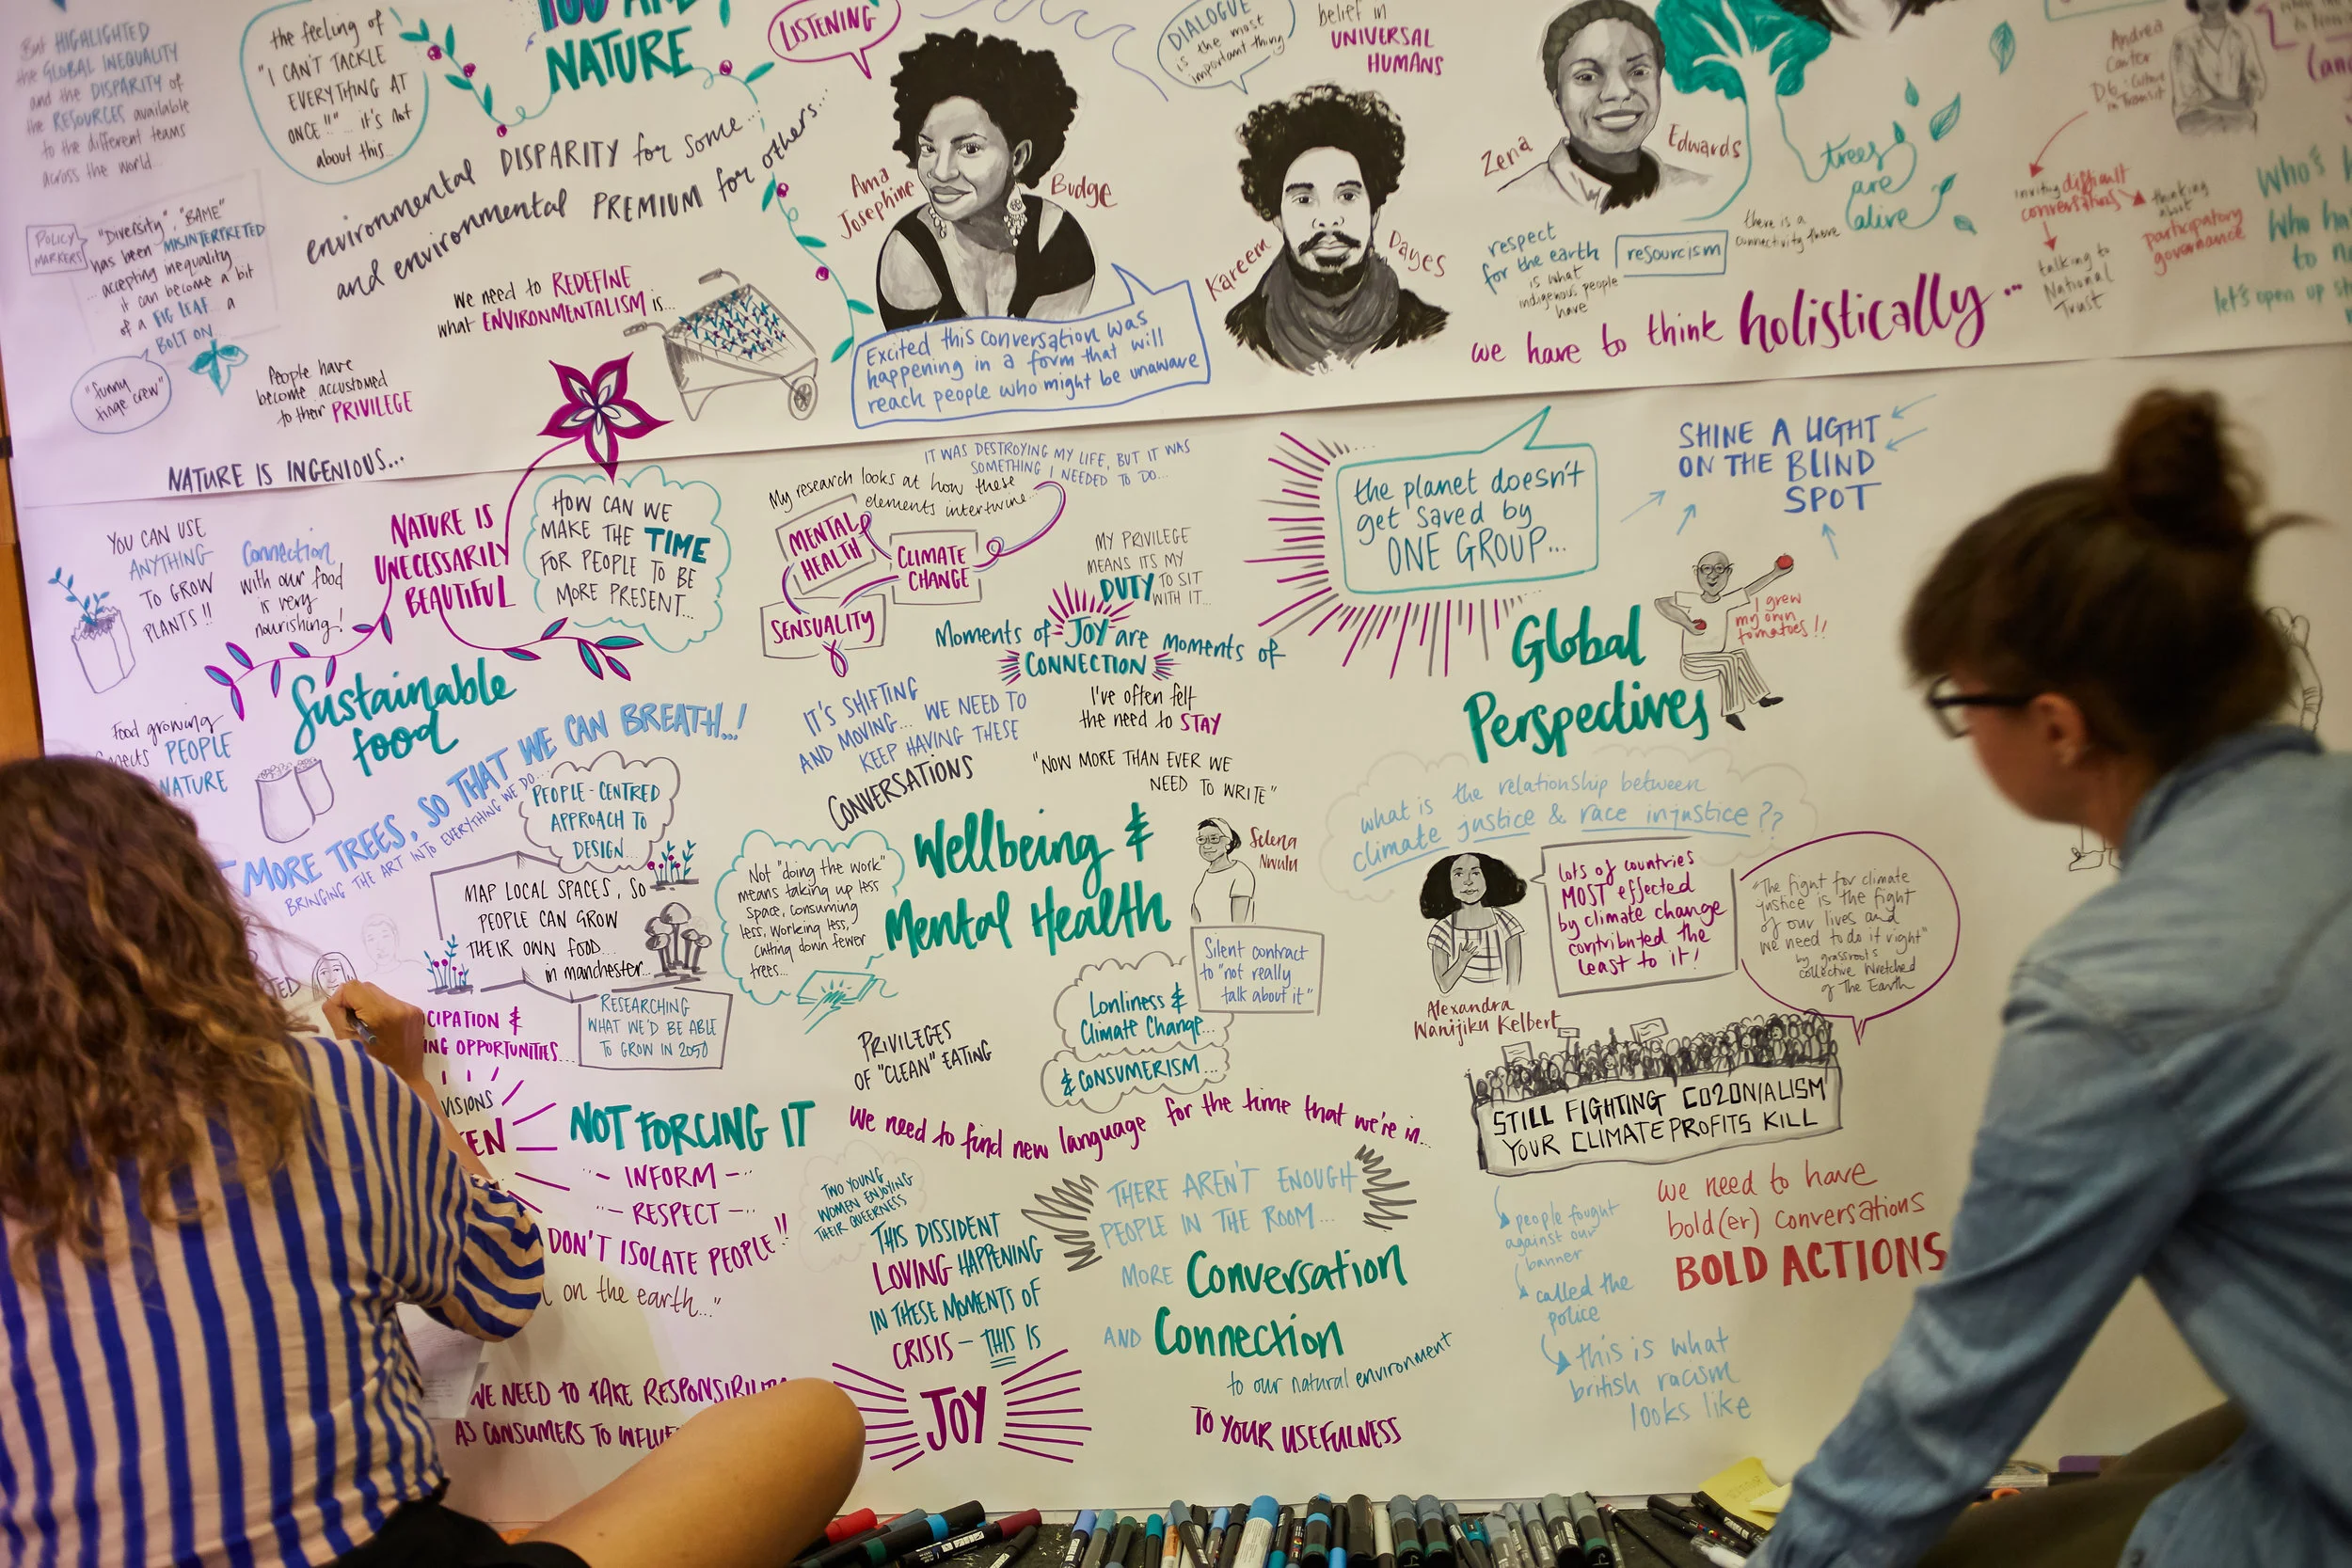 But HIGHLIGHTED
the GLOBAL INEQUALITY
and the DISPARITY of
the RESOURCES available
to the different teams
across the world...
the feeling of
"I CAN'T TACKLE
EVERYTHING AT
ONCE!!"... it's not
about this...
YOU ARE
NATURE
environmental DISPARITY for some...
and environmental PREMIUM for others...
POLICY
MARKERS
"Diversity", "BAME"
has been MISINTERPRETED
... accepting inequality
it can become a bit
of a FIG LEAF... a
BOLT ON...
"funny
tinge crew"
People have
become accustomed
to their PRIVILEGE
We need to REDEFINE
what ENVIRONMENTALISM is...
NATURE IS INGENIOUS...
LISTENING
Ama
Josephine
Budge
Excited this conversation was
happening in a form that will
reach people who might be unaware
DIALOGUE
is the most
important thing
belief in
UNIVERSAL
HUMANS
Kareem
Dayes
Zena
Edwards
respect
for the earth
is what
indigenous people
have
resourcism
there is a
connectivity there
trees
are
alive
we have to think holistically...
Andrea
Carter
D6: Culture
in Transit
inviting difficult
conversations
thinking
about
participatory
governance
talking to
National
Trust
Who's
Who
to
let's open up
YOU CAN USE
ANYTHING
TO GROW
PLANTS!!
Connection
with our food
is very
nourishing!
NATURE IS
UNECESSARILY
BEAUTIFUL
HOW CAN WE
MAKE THE TIME
FOR PEOPLE TO BE
MORE PRESENT...
Sustainable
food
Food growing
PEOPLE
NATURE
MORE TREES, SO THAT WE CAN BREATH..!
BRINGING THE ART INTO EVERYTHING WE DO...
PEOPLE-CENTRED
APPROACH TO
DESIGN...
MAP LOCAL SPACES, SO
PEOPLE CAN GROW
THEIR OWN FOOD...
in manchester...
RESEARCHING
WHAT WE'D BE ABLE
TO GROW IN 2050
CIPATION &
NG OPPORTUNITIES...
VISIONS
EN
NOT FORCING IT
INFORM
RESPECT
DON'T ISOLATE PEOPLE!!
on the earth..."
WE NEED TO TAKE RESPONSIBILIT
AS CONSUMERS TO INFLUE
IT WAS DESTROYING MY LIFE, BUT IT WAS
SOMETHING I NEEDED TO DO...
My research looks at how these
elements intertwine...
MENTAL
HEALTH
CLIMATE
CHANGE
SENSUALITY
MY PRIVILEGE
MEANS ITS MY
DUTY TO SIT
WITH IT...
Moments of JOY are moments of
CONNECTION
IT'S SHIFTING
AND MOVING... WE NEED TO
KEEP HAVING THESE
CONVERSATIONS
I've often felt
the need to STAY
"NOW MORE THAN EVER WE
NEED TO WRITE"
Selena
Nwulu
Wellbeing &
Mental Health
Not "doing the work"
means taking up less
space, consuming
less, working less,
cutting down fewer
trees...
Silent contract
to "not really
talk about it"
Lonliness &
Climate Change...
& CONSUMERISM...
PRIVILEGES
OF "CLEAN" EATING
We need to find new language for the time that we're in...
TWO YOUNG
WOMEN ENJOYING
THEIR QUEERNESS
THIS DISSIDENT
LOVING HAPPENING
IN THESE MOMENTS OF
CRISIS - THIS IS
JOY
THERE AREN'T ENOUGH
PEOPLE IN THE ROOM...
MORE Conversation
AND Connection
to our natural environment
TO YOUR USEFULNESS
the planet doesn't
get saved by
ONE GROUP...
SHINE A LIGHT
ON THE BLIND
SPOT
I grew
my own
tomatoes!!
Global
Perspectives
what is the relationship between
climate justice & race injustice??
Alexandra
Wanjiku Kelbert
lots of countries
MOST effected
by climate change
contributed the
least to it!
"The fight for climate
justice is the fight
of our lives and
we need to do it right"
by grassroots
collective Wretched
of The Earth
STILL FIGHTING CO2ONIALISM
YOUR CLIMATE PROFITS KILL
people fought
against our
banner
called the
police
this is what
british racism
looks like
we need to have
bold(er) conversations
BOLD ACTIONS